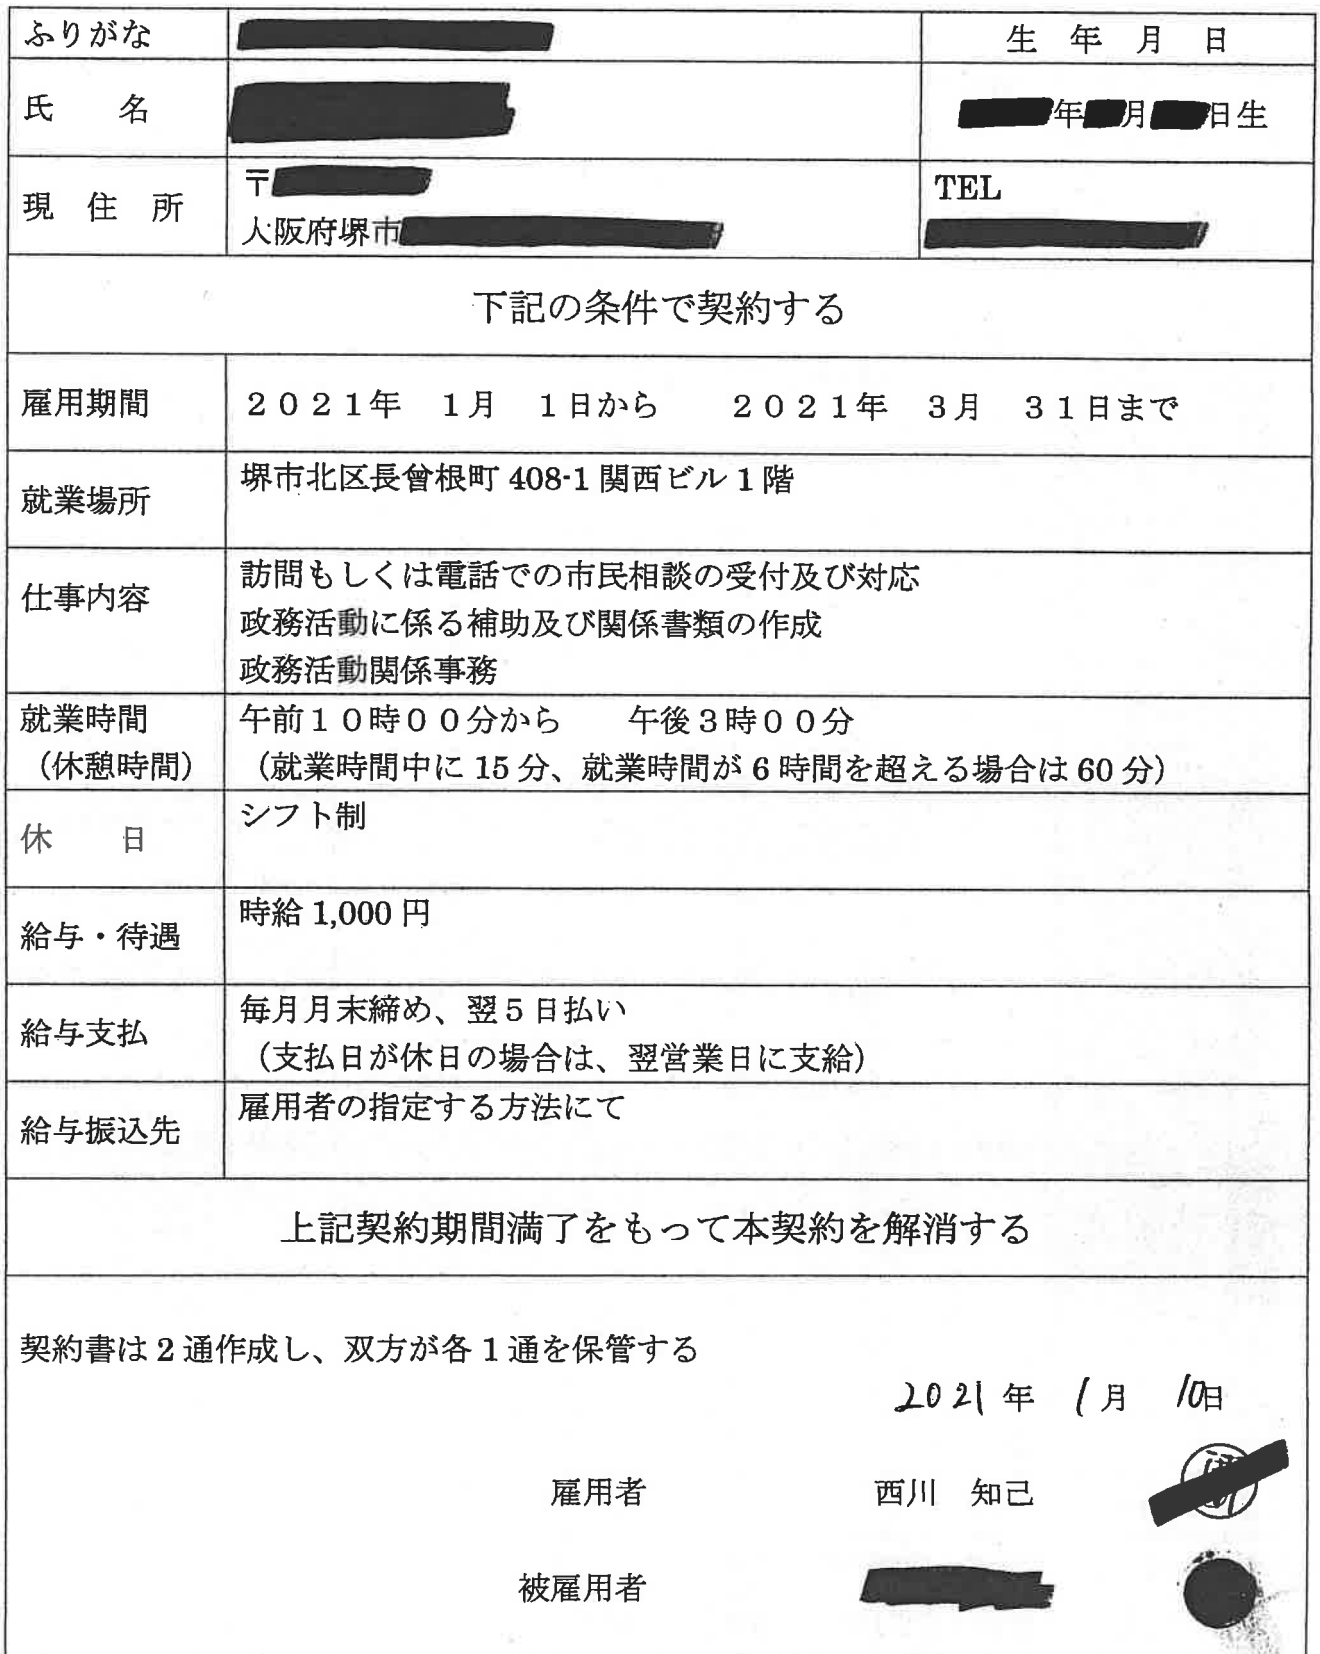 ふりがな
生 年 月 日
氏 名
年 月 日生
現 住 所
〒
大阪府堺市
TEL
下記の条件で契約する
雇用期間
2021年 1月 1日から 2021年 3月 31日まで
就業場所
堺市北区長曾根町 408-1 関西ビル 1 階
仕事内容
訪問もしくは電話での市民相談の受付及び対応
政務活動に係る補助及び関係書類の作成
政務活動関係事務
就業時間
(休憩時間)
午前10時00分から 午後3時00分
(就業時間中に 15 分、就業時間が 6 時間を超える場合は 60 分)
休 日
シフト制
給与・待遇
時給 1,000 円
給与支払
毎月月末締め、翌5日払い
(支払日が休日の場合は、翌営業日に支給)
給与振込先
雇用者の指定する方法にて
上記契約期間満了をもって本契約を解消する
契約書は 2 通作成し、双方が各 1 通を保管する
2021 年 1 月 10日
雇用者 西川 知己
被雇用者